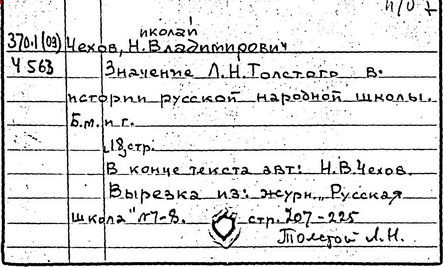 п/о т
иколай
370.1(09) Чехов, Н.Владимирович
Ч 563 Значение Л.Н.Толстого в
истории русской народной школы.
Б.м. и г.
18 стр.
В конце текста авт: Н.В.Чехов.
Вырезка из: журн. „Русская
школа" №7-8. стр. 207-225
Толстой Л.Н.